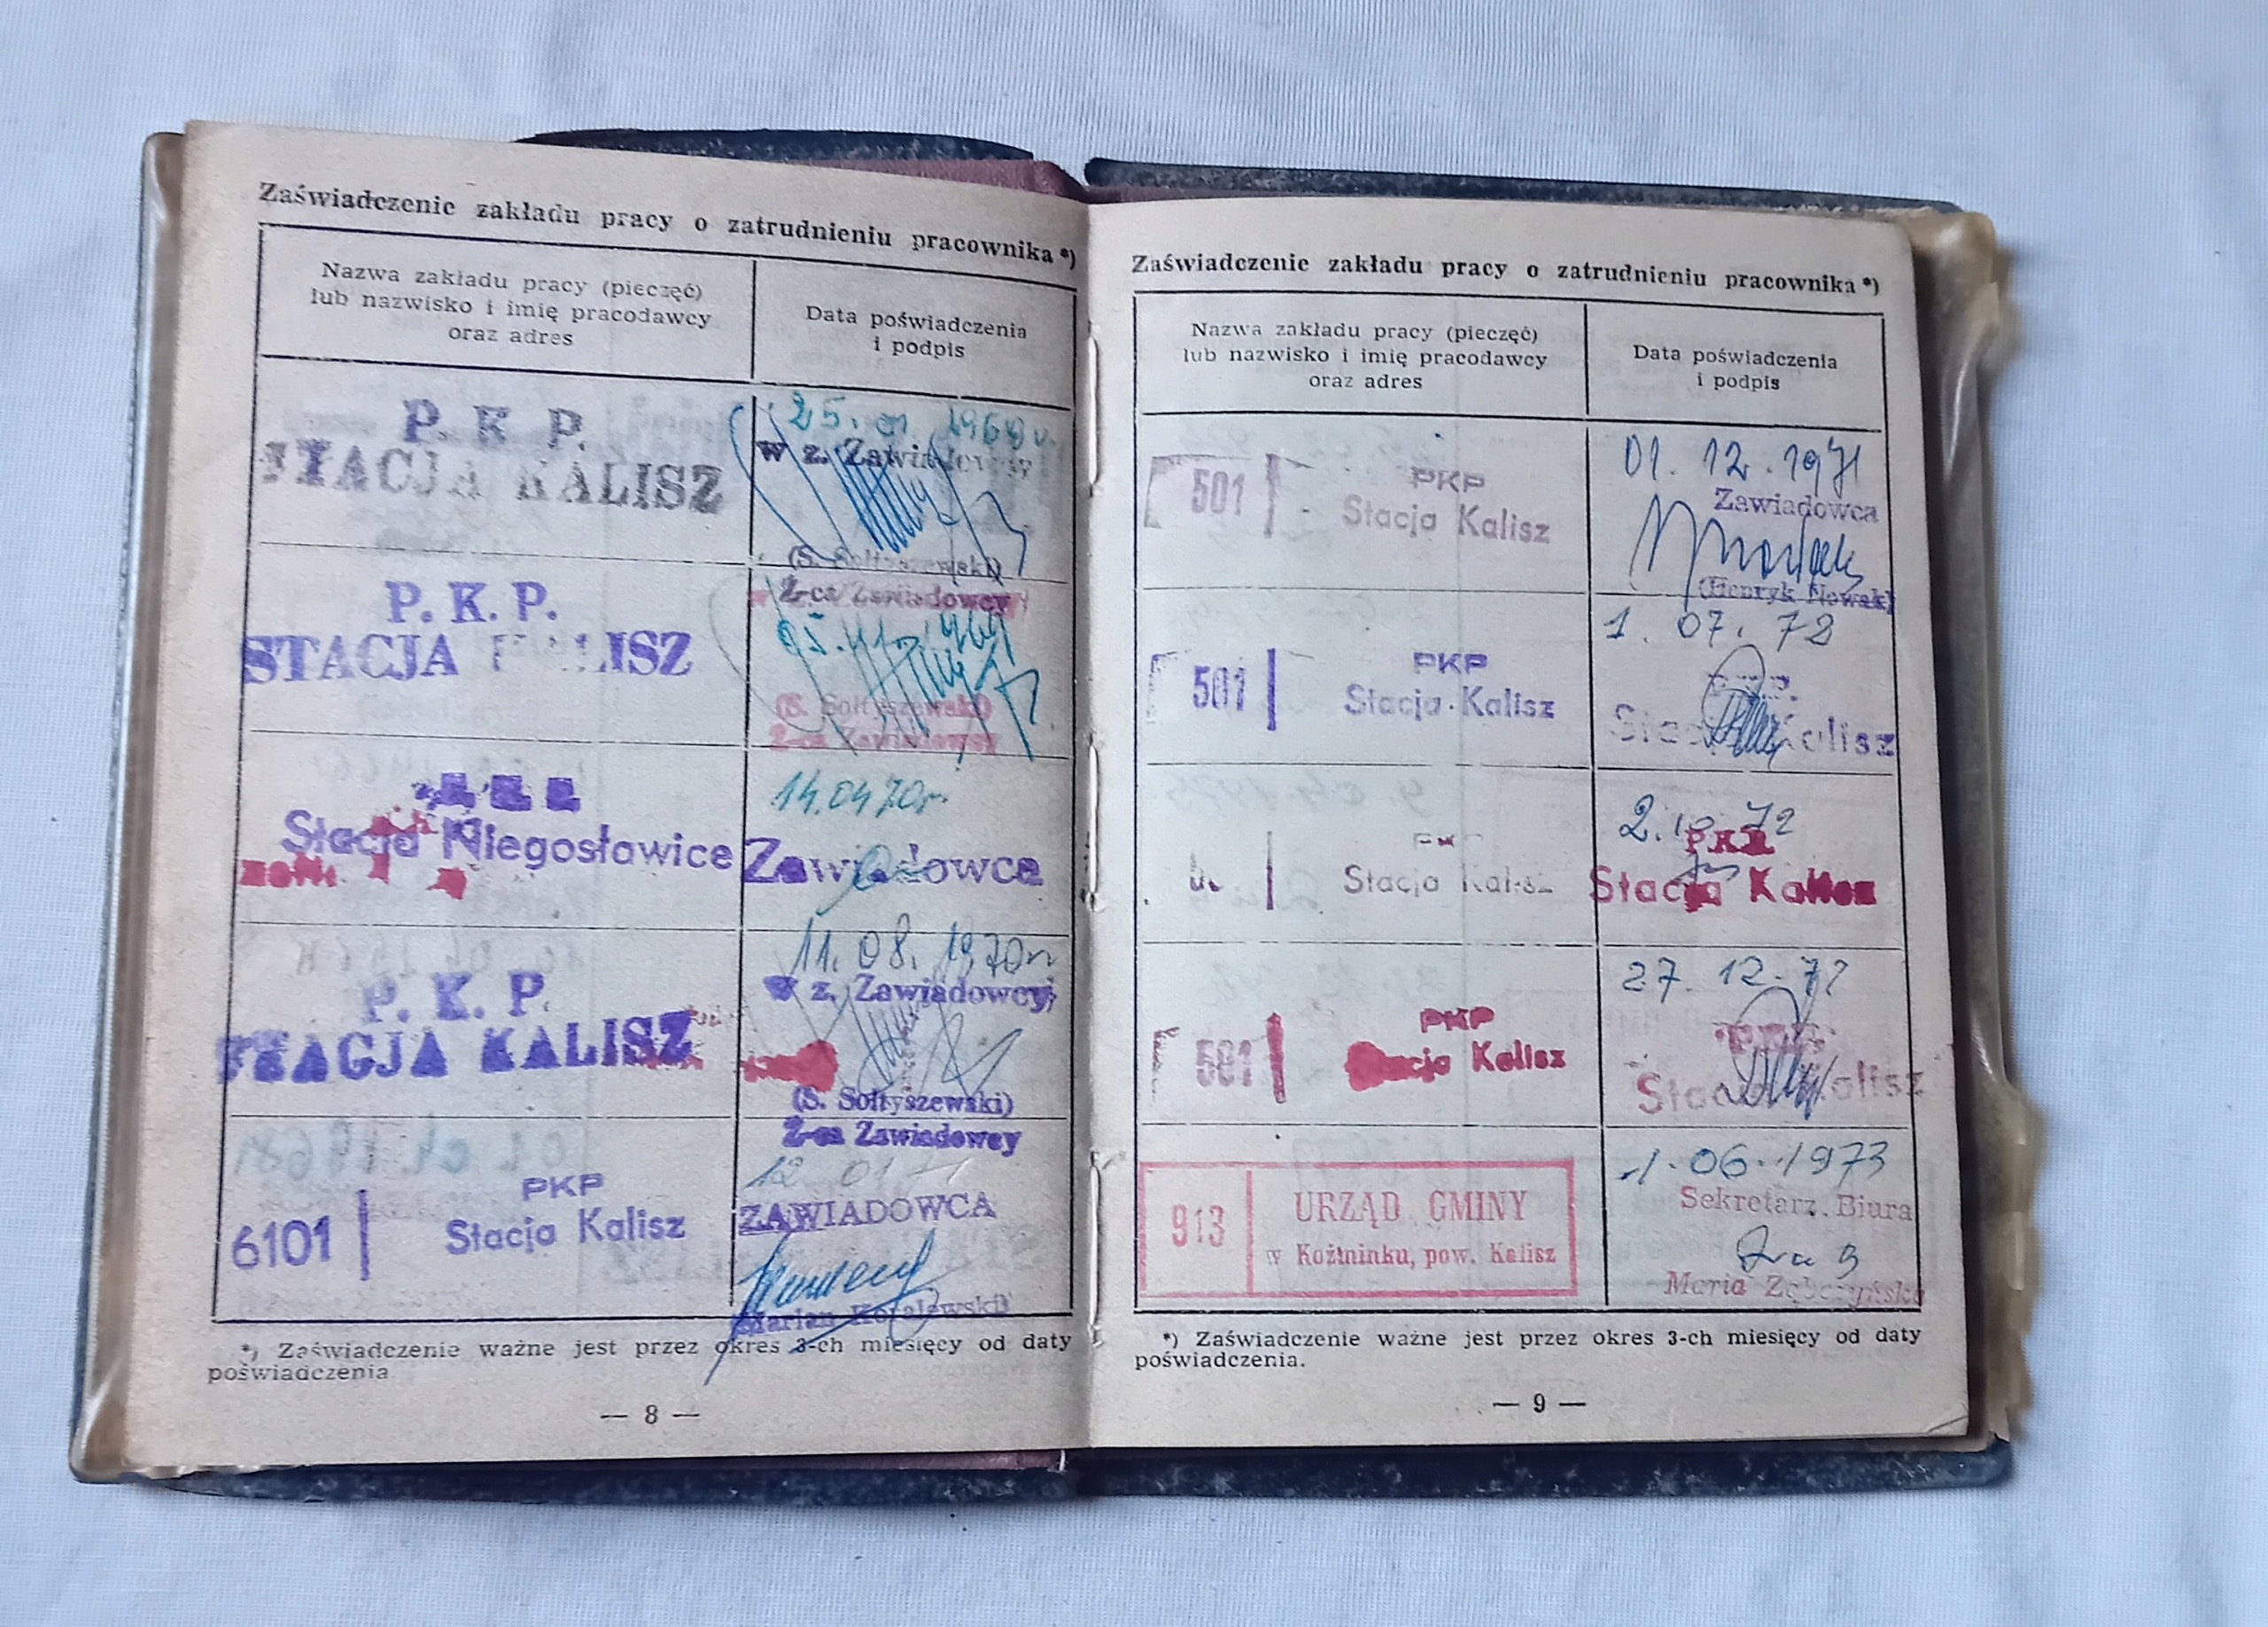 Zaświadczenie zakładu pracy o zatrudnieniu pracownika *)
Nazwa zakładu pracy (pieczęć)
lub nazwisko i imię pracodawcy
oraz adres
Data poświadczenia
i podpis
P. K P.
STACJA KALISZ
25.
w z. Zawiadowcy
(S. Sołtyszewski)
Z-ca Zawiadowcy
P. K. P.
STACJA KALISZ
(S. Sołtyszewski)
Z-ca Zawiadowcy
Stacja Niegosławice
14.04.70r.
Zawiadowca
P. K. P.
STACJA KALISZ
11. 08. 1970r
w z. Zawiadowcy
(S. Sołtyszewski)
Z-ca Zawiadowcy
6101
PKP
Stacja Kalisz
12 01 71
ZAWIADOWCA
Marian Kowalewski
*) Zaświadczenie ważne jest przez okres 3-ch miesięcy od daty
poświadczenia
— 8 —
Zaświadczenie zakładu pracy o zatrudnieniu pracownika *)
Nazwa zakładu pracy (pieczęć)
lub nazwisko i imię pracodawcy
oraz adres
Data poświadczenia
i podpis
501
PKP
Stacja Kalisz
01. 12. 1971
Zawiadowca
(Henryk Nowak)
501
PKP
Stacja Kalisz
1. 07. 72
P.K.P.
Stacja Kalisz
Stacja Kalisz
2. 10. 72
PKP
Stacja Kalisz
501
PKP
Stacja Kalisz
27. 12. 72
Stacja Kalisz
913
URZĄD GMINY
w Koźminku, pow. Kalisz
1. 06. 1973
Sekretarz Biura
Maria
*) Zaświadczenie ważne jest przez okres 3-ch miesięcy od daty
poświadczenia.
— 9 —